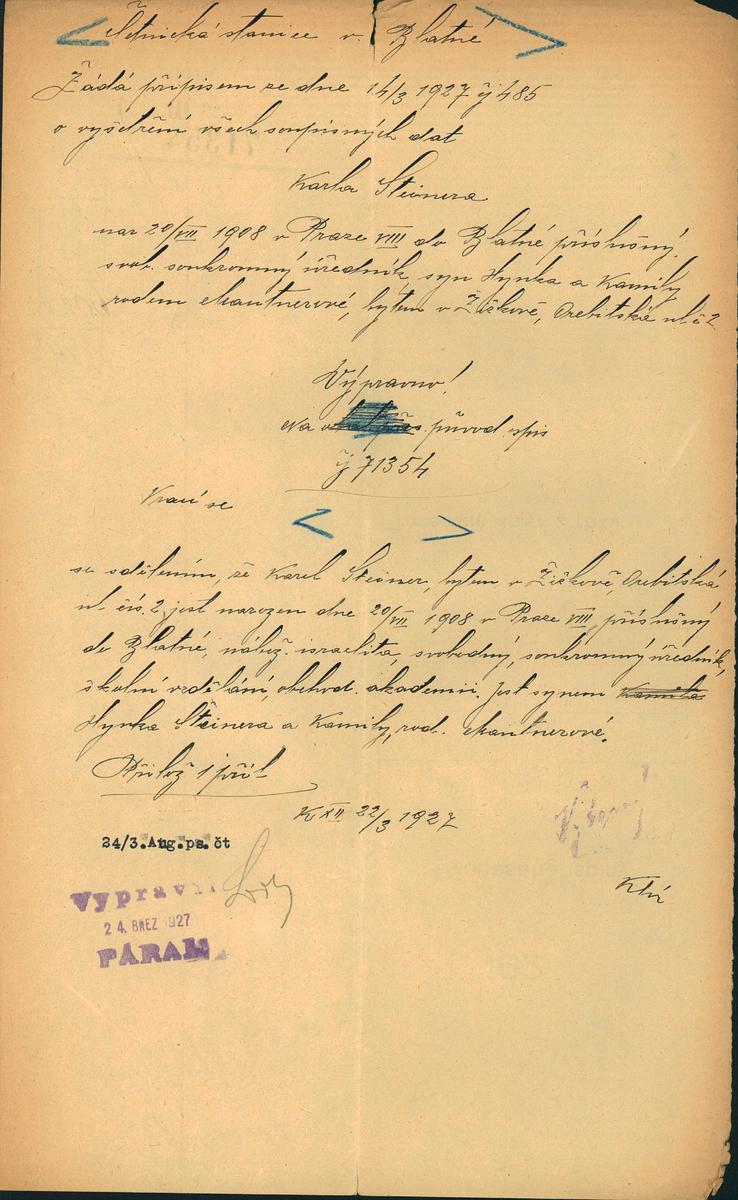 Četnická stanice v Blatné
Žádá přípisem ze dne 14/3 1927 čj 485
o vyšetření všech soupisných dat
Karla Steinera
nar 20/VII 1908 v Praze VIII do Blatné příslušný,
svob. soukromný úředník, syn Hynka a Kamily
rodem Mautnerové, bytem v Žižkově, Orebitská ul č 2
Výpravno!
Na původ. spis
čj 71354
Vrací se
se sdělením, že Karel Steiner, bytem v Žižkově, Orebitská
ul. čís. 2, jest narozen dne 20/VII 1908 v Praze VIII, příslušný
do Blatné, nábož. israelita, svobodný, soukromný úředník,
školní vzdělání, obchod. akademii. Jest synem Kamila
Hynka Steinera a Kamily, rod. Mautnerové.
Přilož 1 příl
K XII 22/3 1927
24/3.Aug.ps.čt
Vypravil
24. BŘEZ 1927